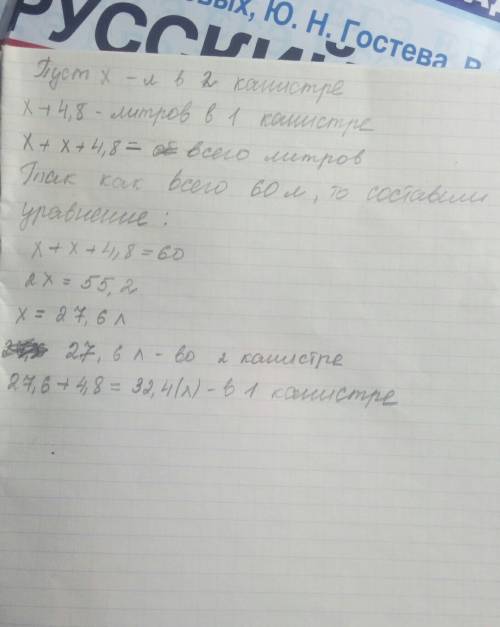 овых, Ю. Н. Гостева, В
РУССКИЙ
Пуст х - л в 2 канистре
х + 4,8 - литров в 1 канистре
х + х + 4,8 = всего литров
Так как всего 60 л, то составим
уравнение:
х + х + 4,8 = 60
2х = 55,2
х = 27,6 л
27,6 л - во 2 канистре
27,6 + 4,8 = 32,4(л) - в 1 канистре